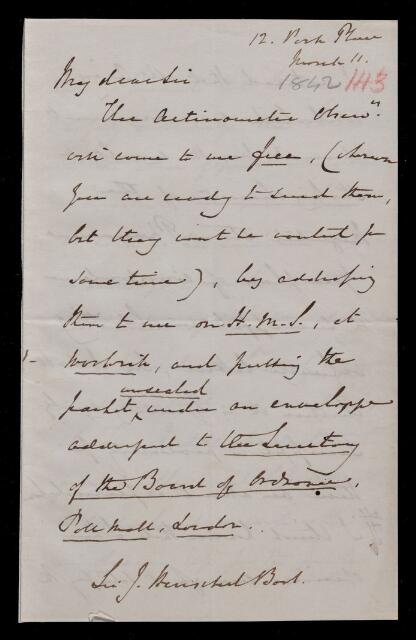 12. York Place
March 11.
1842 143
My dear Sir
The Actinometer Observns
will come to me free, (when
you are ready to send them,
but they wont be wanted for
some time), by addressing
them to me on H.M.S., at
Woolwich, and putting the
unsealed
packet, under an enveloppe
addressed to the Secretary
of the Board of Ordnance,
Pall Mall, London.
Sir J. Herschel Bart.